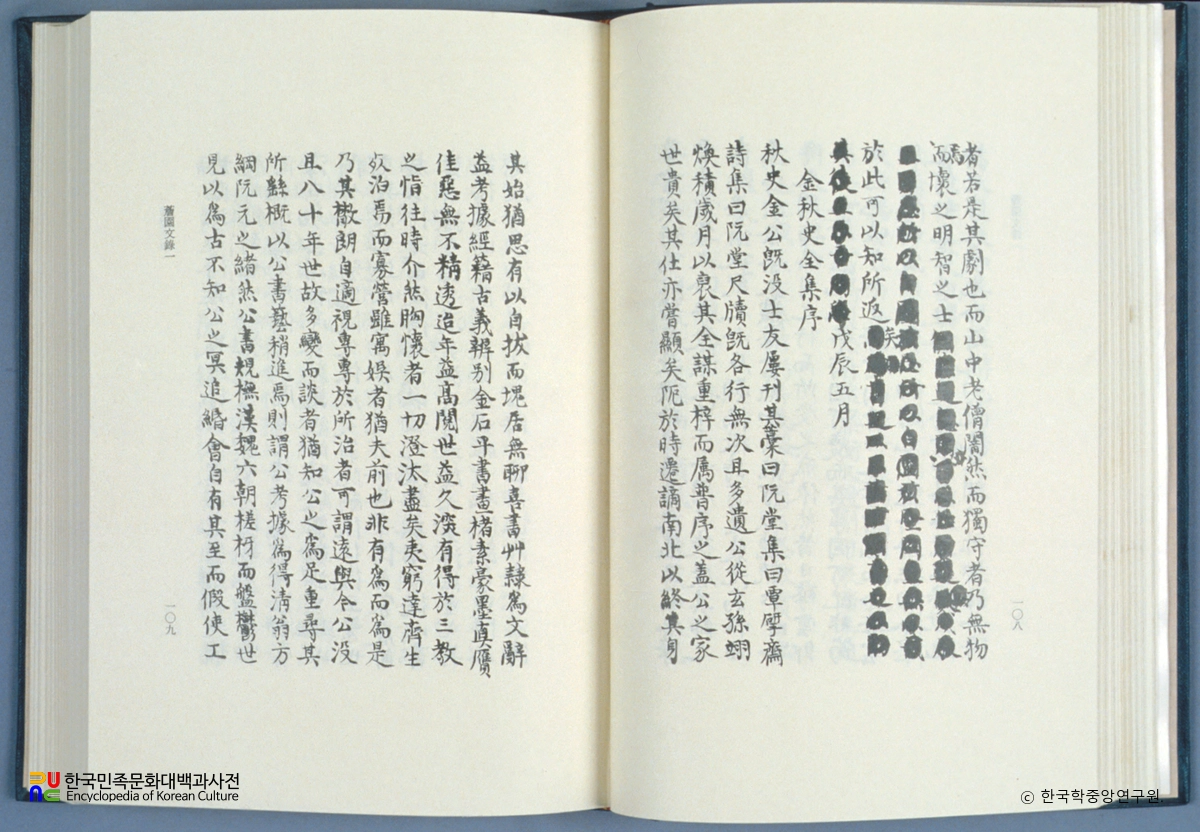 者若是其劇也而山中老僧闇然而獨守者乃無物
而壞之明智之士
於此可以知所返矣
戊辰五月
金秋史全集序
秋史金公旣没士友屢刊其藁曰阮堂集曰覃揅齋
詩集曰阮堂尺牘旣各行無次且多遺公從玄孫翊
煥積歲月以裒其全謀重梓而属普序之蓋公之家
世貴矣其仕亦嘗顯矣阨於時遷謫南北以終其身
一〇八
其始猶思有以自拔而塊居無聊喜書艸隷爲文辭
益考據經籍古義辨别金石平書畫楮素豪墨真贋
佳惡無不精透迨年益高閱世益久深有得於三教
之恉往時介然胸懷者一切澄汰盡矣夷窮達齊生
殁泊焉而寡營雖寓娛者猶夫前也非有爲而爲是
乃其樕朗自適視專專於所治者可謂遠與今公没
且八十年世故多變而談者猶知公之爲足重尋其
所繇概以公書藝稍進焉則謂公考據爲得淸翁方
綱阮元之緒然公書規橅漢魏六朝槎枒而盤鬱世
見以爲古不知公之冥追緡會自有其至而假使工
薝園文錄一
一〇九
한국민족문화대백과사전
Encyclopedia of Korean Culture
© 한국학중앙연구원.